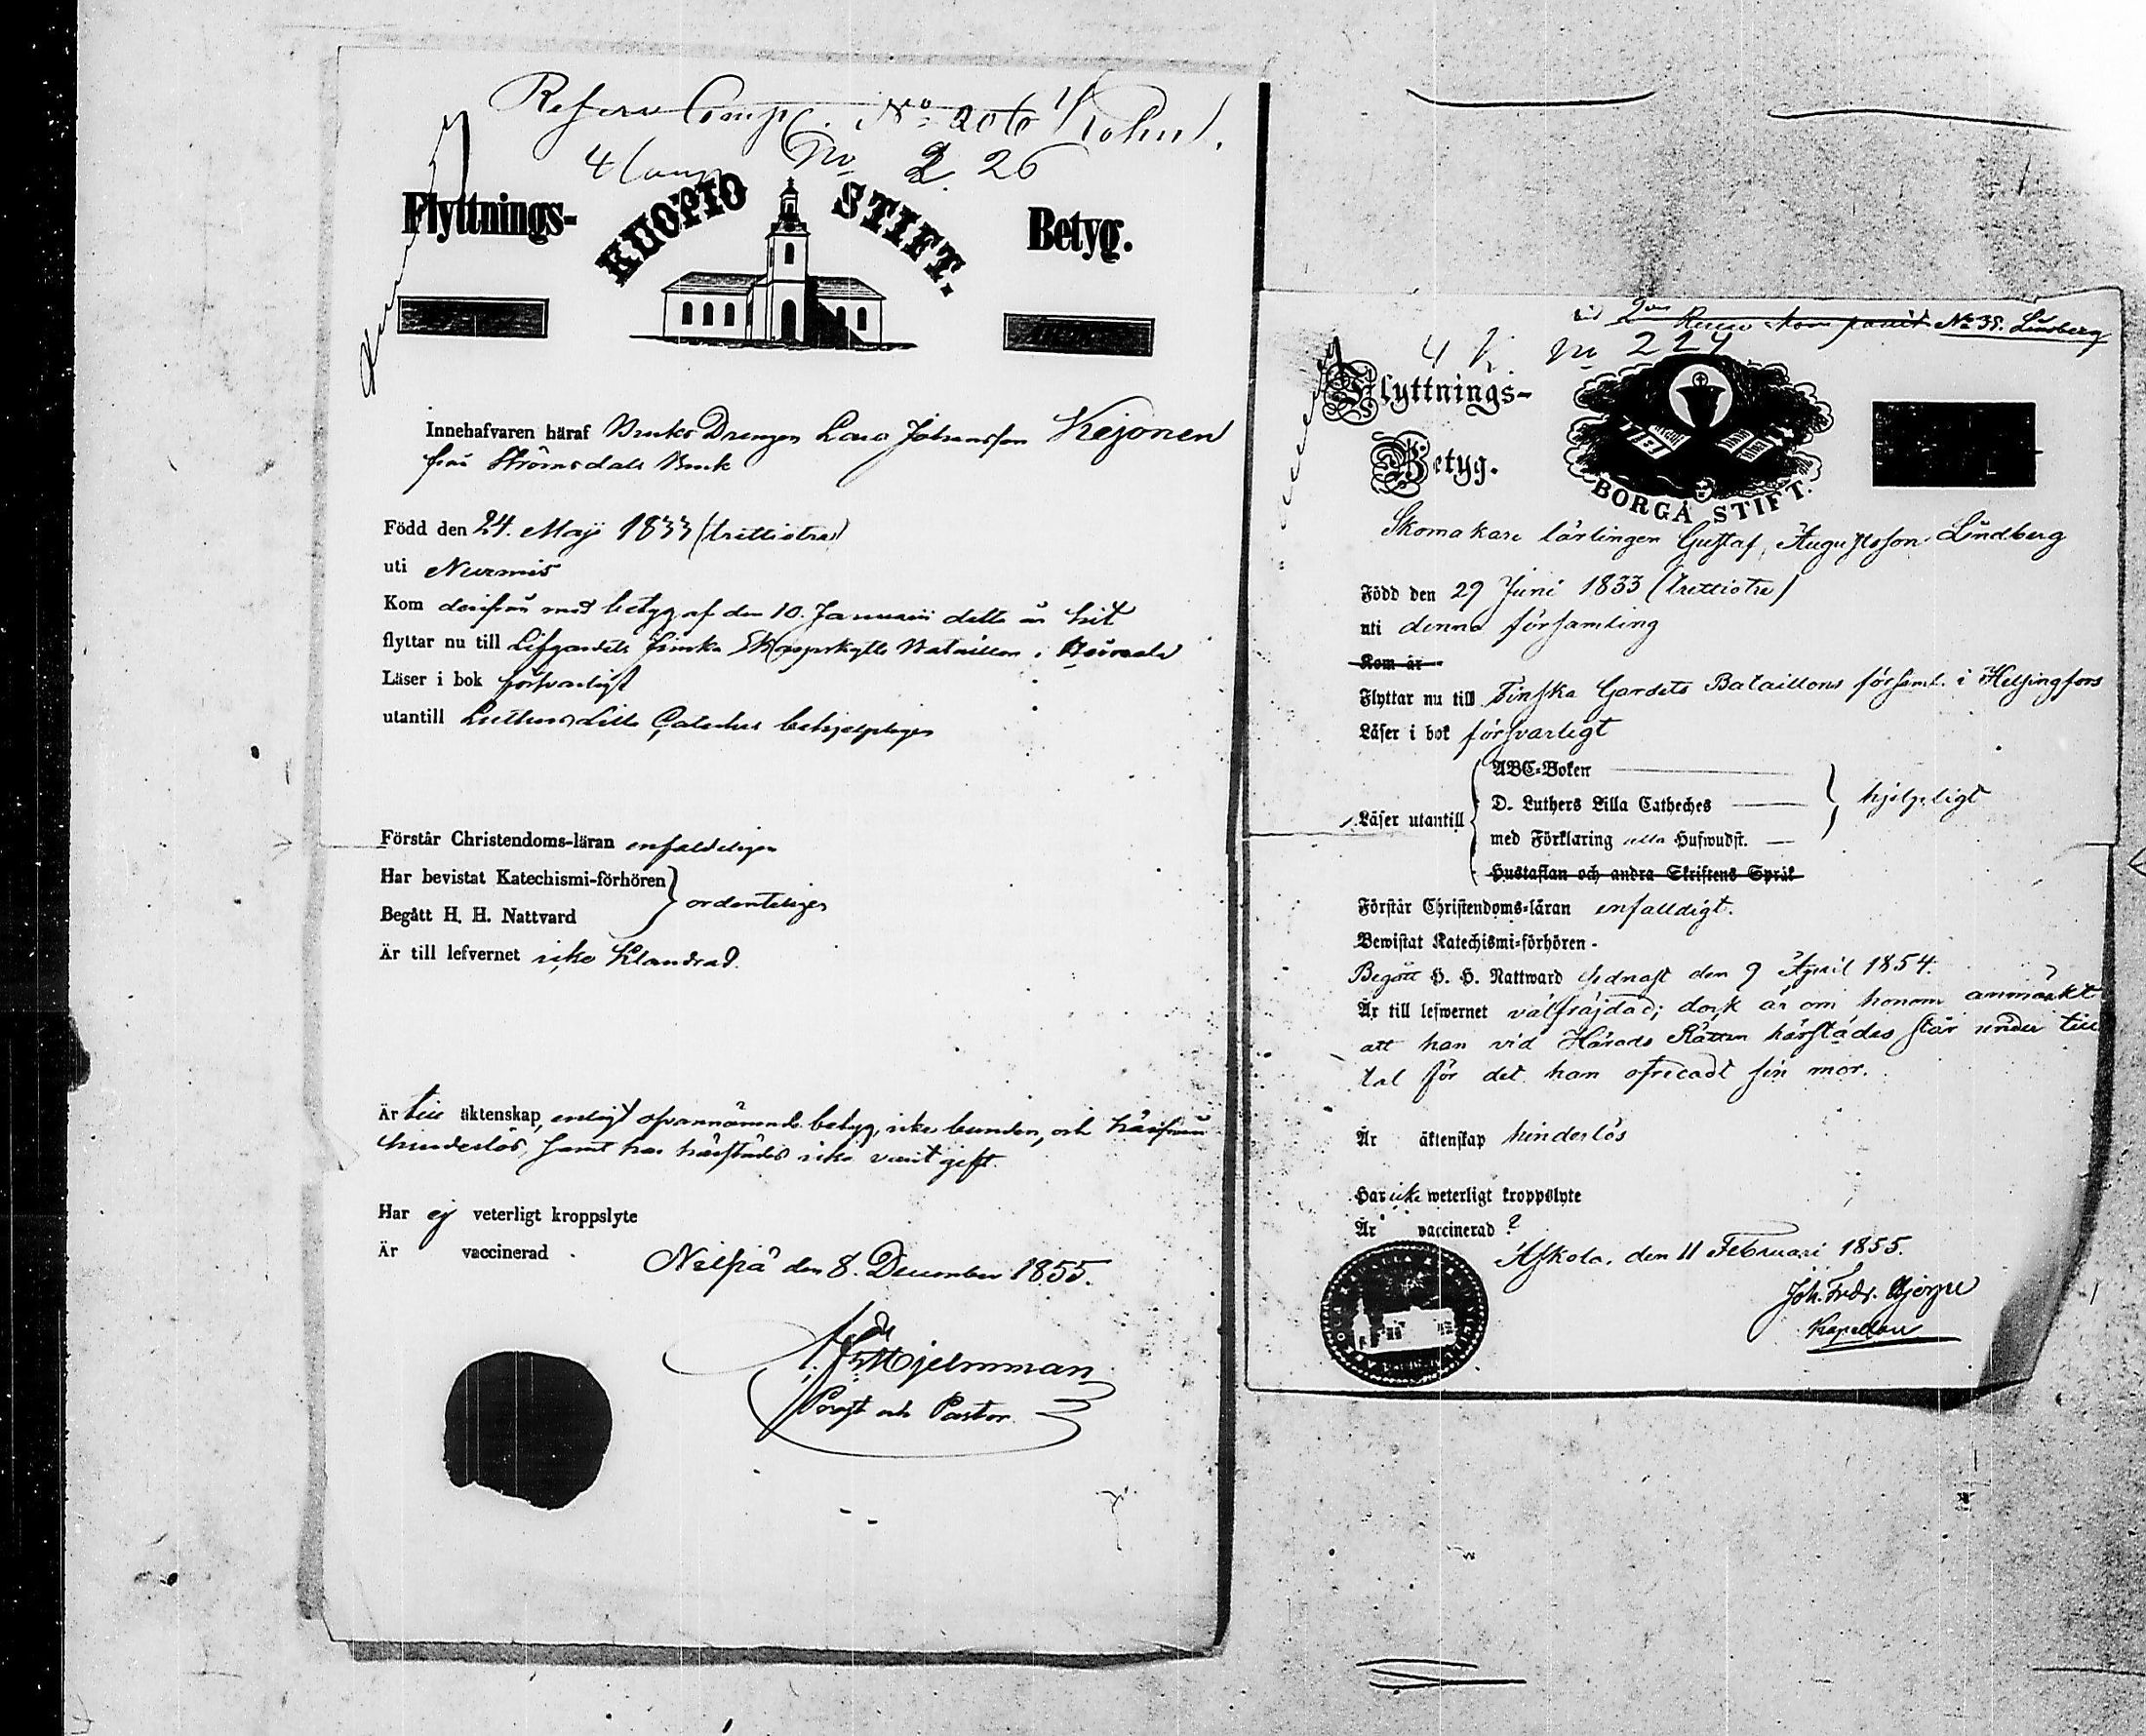 Reserv Comp. No 206
4 Comp No 2 26
Flyttnings- KUOPIO STIFT. Betyg.
Innehafvaren häraf Bruks Drengen Lars Johansson Kejonen
från Strömsdals Bruk
Född den 24. Maji 1833 (trettiotre)
uti Nurmis
Kom derifrån med betyg af den 10. Januarii detta år hit
flyttar nu till Lifgardets Finska Skarpskytte Bataillon i
Läser i bok försvarligt
utantill Luthers Lilla Cateches behjelpligen
Förstår Christendoms-läran enfaldeligen
Har bevistat Katechismi-förhören } ordenteligen
Begått H. H. Nattvard
Är till lefvernet icke klandrad.
Är till äktenskap, enligt ofvannämnde betyg, icke bunden, och härifrån
hinderlös, samt har härstädes icke varit gift.
Har ej veterligt kroppslyte
Är vaccinerad
Nilsiä den 8. December 1855.
Hjelmman
Prost och Pastor
2dra Reserv kompanit No 35. Lindberg
4 K. No 224
Flyttnings-
Betyg.
BORGÅ STIFT.
Skomakare lärlingen Gustaf Augustsson Lindberg
Född den 29 Juni 1833 (trettiotre)
uti denna församling
Kom år
Flyttar nu till Finska Gardets Bataillons församl. i Helsingfors
Läser i bok försvarligt
Läser utantill { ABC-Boken
D. Luthers Lilla Catheches } hjelpligt
med Förklaring Hufwudst.
Hustaflan och andra Skriftens Språk
Förstår Christendoms-läran enfalldigt.
Bewistat Katechismi-förhören -
Begått H. H. Nattward sednast den 9 April 1854.
Är till lefwernet välfräjdad; dock är om honom anmärkt
att han vid Härads Rätten härstädes står under till
tal för det han ofredadt sin mor.
Är äktenskap hinderlös
Har icke weterligt kroppslyte
Är vaccinerad ?
Askola, den 11 Februari 1855.
Joh. Fredr.
Kapellan